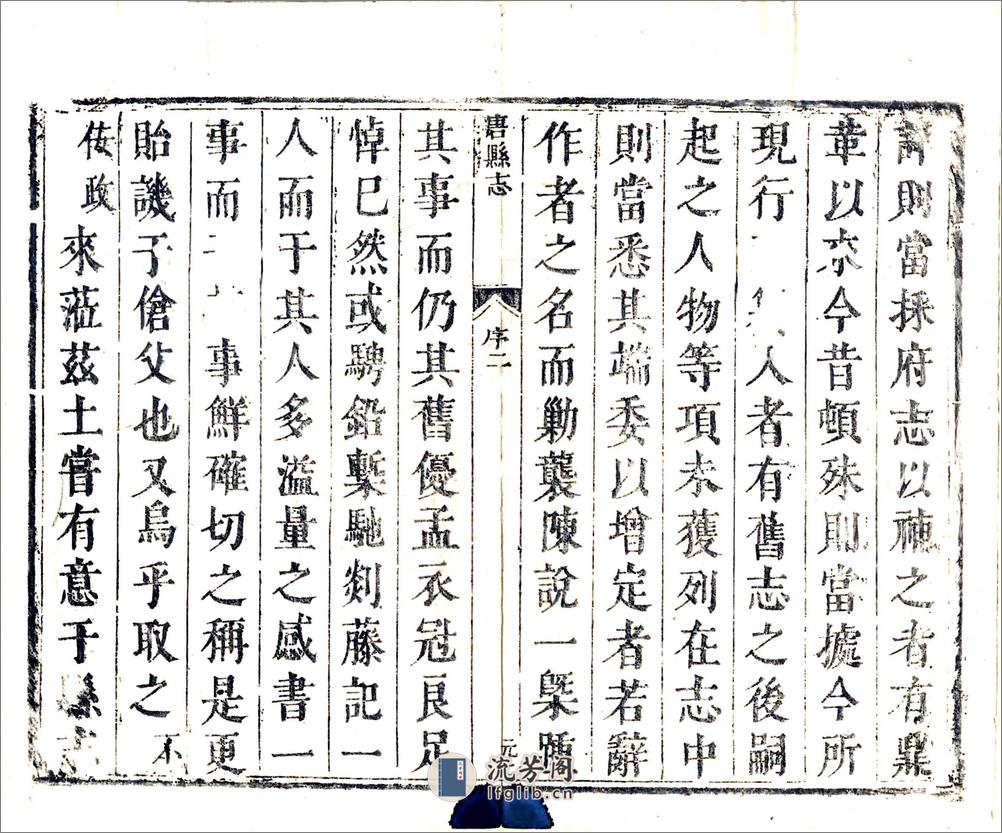 詳則當採府志以補之者有鼎
革以來今昔頓殊則當據今所
現行人者有舊志之後嗣
起之人物等項未獲列在志中
則當悉其端委以增定者若辭
作者之名而勦襲陳說一槩踵
唐縣志
序二
元
其事而仍其舊優孟衣冠良足
悼已然或騁鉛槧馳剡藤記一
人而于其人多溢量之感書一
事而事鮮確切之稱是更
貽譏于傖父也又烏乎取之不
佞政來蒞茲土嘗有意于縣志
流芳阁
lfglib.cn